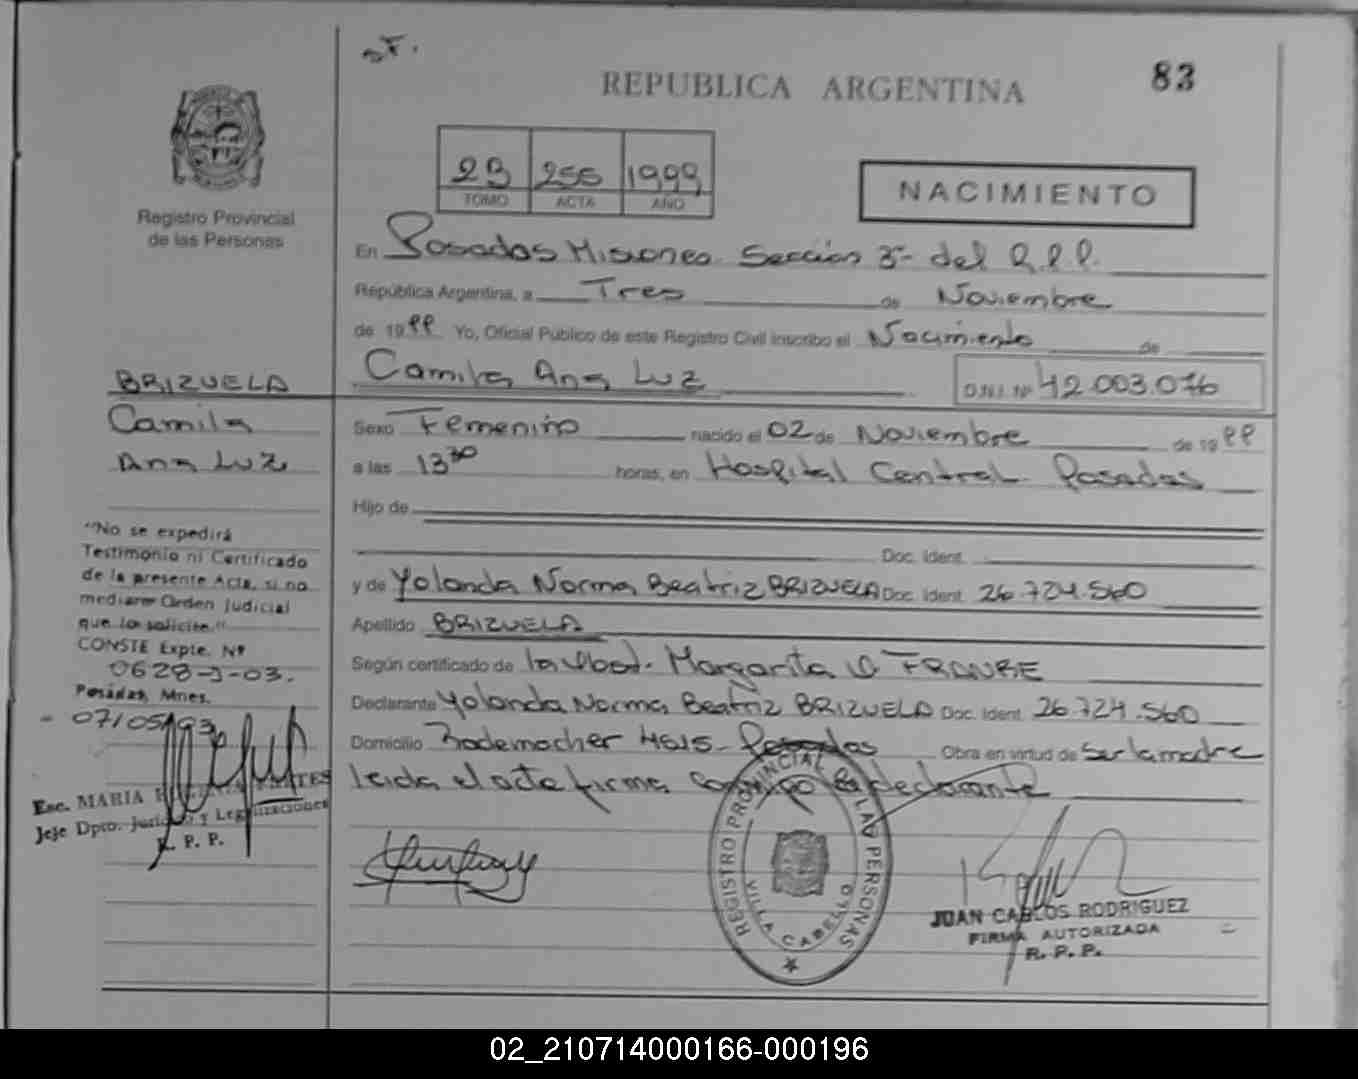 83
REPUBLICA ARGENTINA
Registro Provincial
de las Personas
2B 256 1999
TOMO ACTA AÑO
NACIMIENTO
En Posadas Misiones Sección 3ª del R.P.P.
República Argentina, a Tres de Noviembre
de 1999 Yo, Oficial Público de este Registro Civil inscribo el Nacimiento de
Camila Ana Luz D.N.I. Nº 42.003.076
BRIZUELA
Camila
Ana Luz
Sexo Femenino nacido el 02 de Noviembre de 1999
a las 13 30 horas, en Hospital Central Posadas
Hijo de
Doc. Ident.
y de Yolanda Norma Beatriz BRIZUELA Doc. Ident. 26.724.560
Apellido BRIZUELA
Según certificado de la Obst. Margarita FRANRE
Declarante Yolanda Norma Beatriz BRIZUELA Doc. Ident. 26.724.560
Domicilio Rademacher 4615- Posadas Obra en virtud de ser la madre
leida el acta firma conmigo la declarante
"No se expedirá
Testimonio ni Certificado
de la presente Acta, si no
mediare Orden Judicial
que lo solicite."
CONSTE Expte. Nº
0628-J-03.
Posadas, Mnes.
07/05/
Esc. MARIA
Jefe Dpto. Jurídico y Legalizaciones
R. P. P.
REGISTRO PROVINCIAL DE LAS PERSONAS
VILLA CABELLO
JUAN CARLOS RODRIGUEZ
FIRMA AUTORIZADA
R. P. P.
02_210714000166-000196